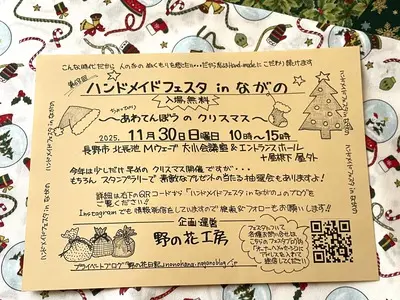 こんな時代だから 人の手の ぬくもりを感じたい・・・だから私はHand-madeに こだわり続けます
ハンドメイドフェスタ in ながの
入場無料
～あわてんぼうの クリスマス～
2025. 11月30日日曜日 10時～15時
長野市 北長池 Mウェーブ 大川会議室 & エントランスホール
+屋根下 屋外
今年は少しだけ早めの クリスマス開催ですが・・・
もちろん スタンプラリーで 素敵なプレゼントの当たるお楽しみもありますよ!
詳細は右下のQRコードから「ハンドメイドフェスタinながの」のブログを
ご覧ください!!
Instagramでも情報発信をしていますので 検索&フォローもお願いします!!
企画・運営
野の花工房
プライベートブログ 野の花日記
フェスタについて
各種お問い合せは
こちらのフェスタブログ内
ハンドメイドフェスタinながの
ハンドメイドフェスタinながの